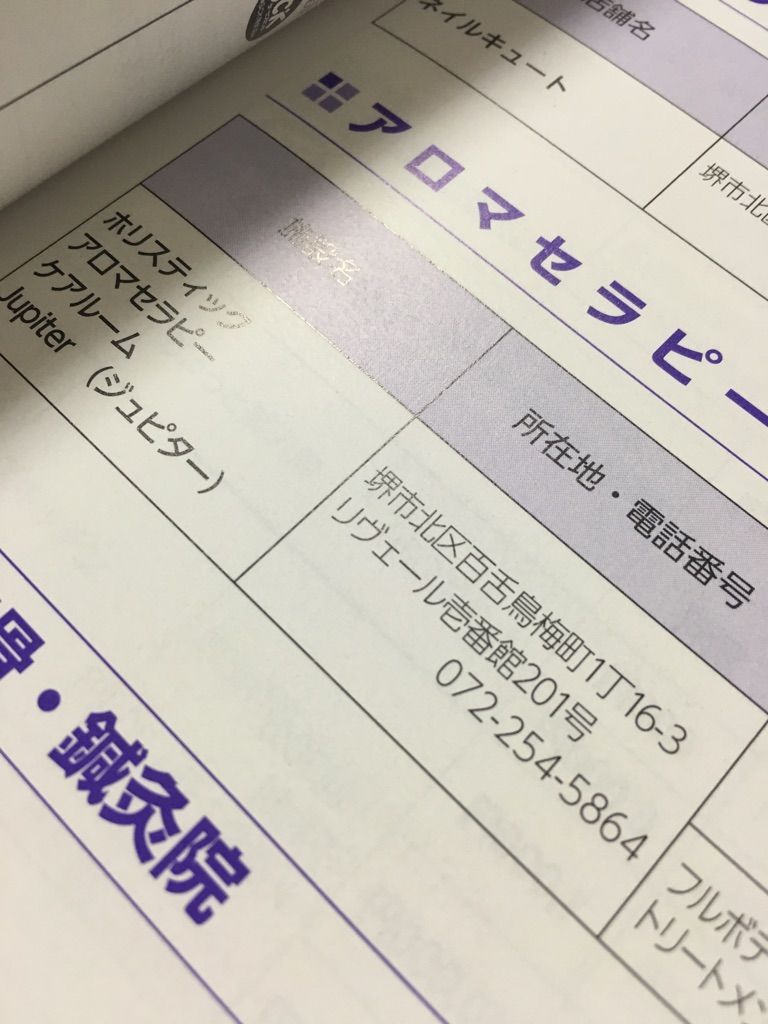 店舗名
ネイルキュート
堺市北区
アロマセラピー
施設名
所在地・電話番号
ホリスティック
アロマセラピー
ケアルーム
Jupiter（ジュピター）
堺市北区百舌鳥梅町1丁16-3
リヴェール壱番館201号
072-254-5864
フルボデ
トリートメン
骨・鍼灸院